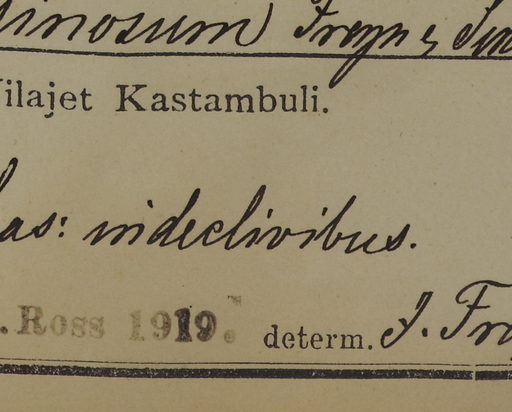 Freyn &
ilajet Kastambuli.
as: in declivibus.
. Ross 1919. determ. J. Fre